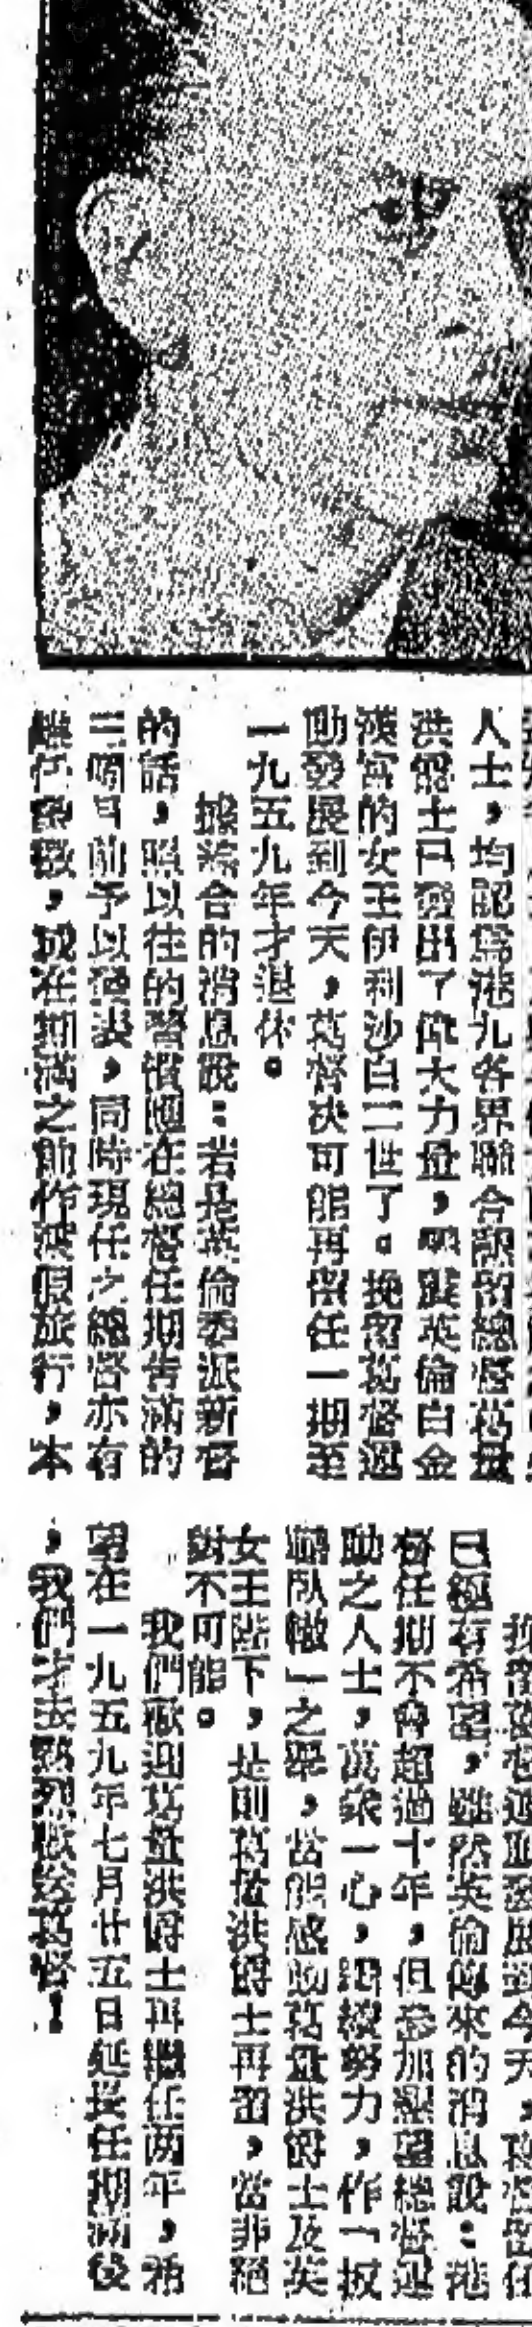 人士，均認爲港九各界聯合挽留總督葛量
洪爵士已發出了偉大力量，震英倫白金
漢宮的女王伊利沙白二世了。挽留葛督運
動發展到今天，葛督决可能再留任一期至
一九五九年才退休。
據綜合的消息說：若是英倫委派新督
的話，照以往的習慣應在總督任期告滿的
三個月前予以發表，同時現任之總督亦有
，或在期滿之前作渡假旅行，本
挽留葛督運動發展到今天，葛督留任
已極有希望，雖然英倫傳來的消息說：港
督任期不會超過十年，但參加懇望總督運
動之人士，萬衆一心，繼續努力，作「扳
轅臥轍」之舉，當能感動葛量洪爵士及英
女王陛下，是則葛量洪爵士再留，當非絕
對不可能。
我們歡迎葛量洪爵士再繼任两年，希
望在一九五九年七月廿五日延長任期滿後
，我們才去熱烈歡送葛督！